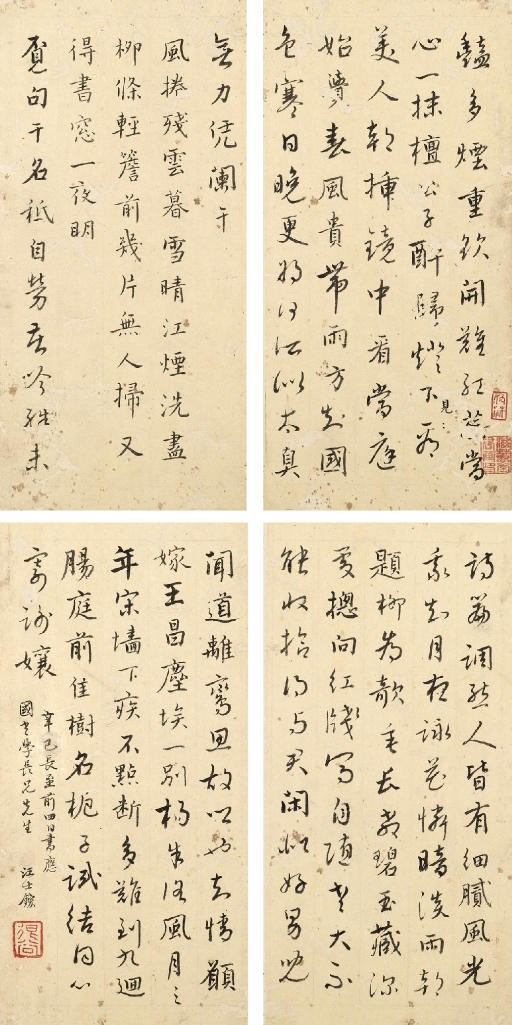 艷多煙重欲開難紅蕊當
心一抹檀公子醉歸燈下見
美人朝插鏡中看當庭
始覺春風貴帶雨方知國
色寒日晚更將何所似太真
無力凭闌干
風捲殘雲暮雪晴江煙洗盡
柳條輕簷前幾片無人掃又
得書窓一夜明
覓句干名秪自勞苦吟殊未
詩篇調態人皆有細膩風光
我知月夜詠花憐暗淡雨朝
題柳為欹垂長教碧玉藏深
處摠向紅牋寫自隨老大不
能收拾得與君閑似好男兒
聞道離鸞思故鄉也知情願
嫁王昌塵埃一別楊朱路風月三
年宋墻下疾不點斷多難到九迴
腸庭前佳樹名梔子試結同心
寄謝孃
辛巳長至前四日書應
國老學長兄先生
汪士鋐